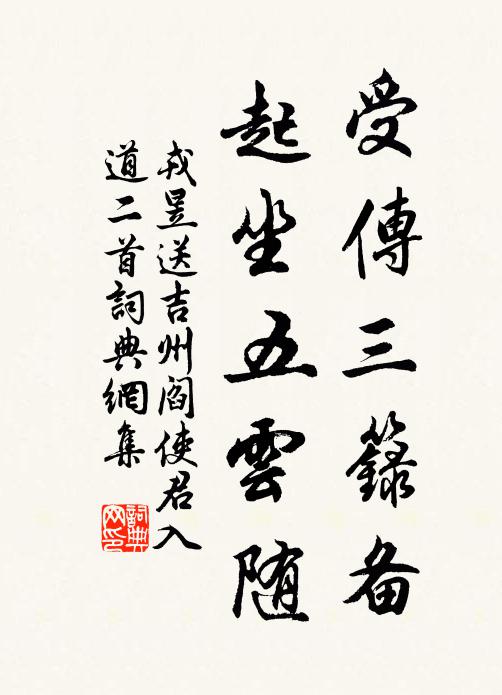 受傳三籙备
起坐五雲随
戎昱送吉州閻使君入
道二首詞典網集
詞典网印